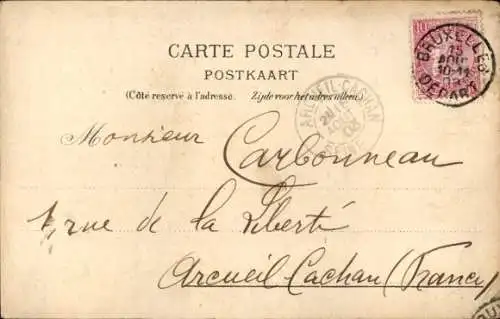 CARTE POSTALE
POSTKAART
(Côté reservé à l'adresse. Zijde voor het adres alleen.)
10
BRUXELLES
15
AOUT
10-11
DEPART
ARCUEIL-CACHAN
AOUT
SEINE
Monsieur Carbonneau
1, rue de la Liberté
Arcueil Cachan (France)